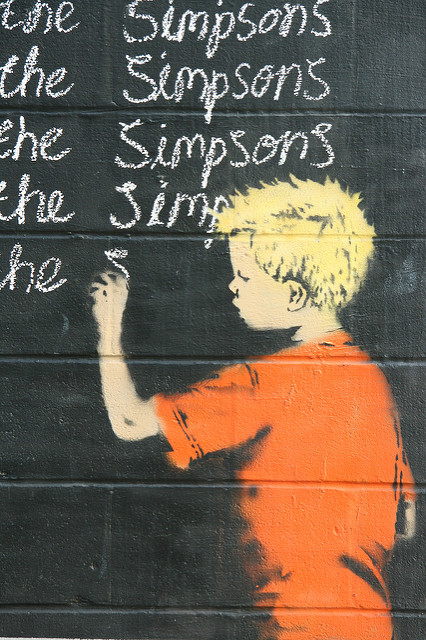 the Simpsons
the Simpsons
the Simpsons
the Simp
he S